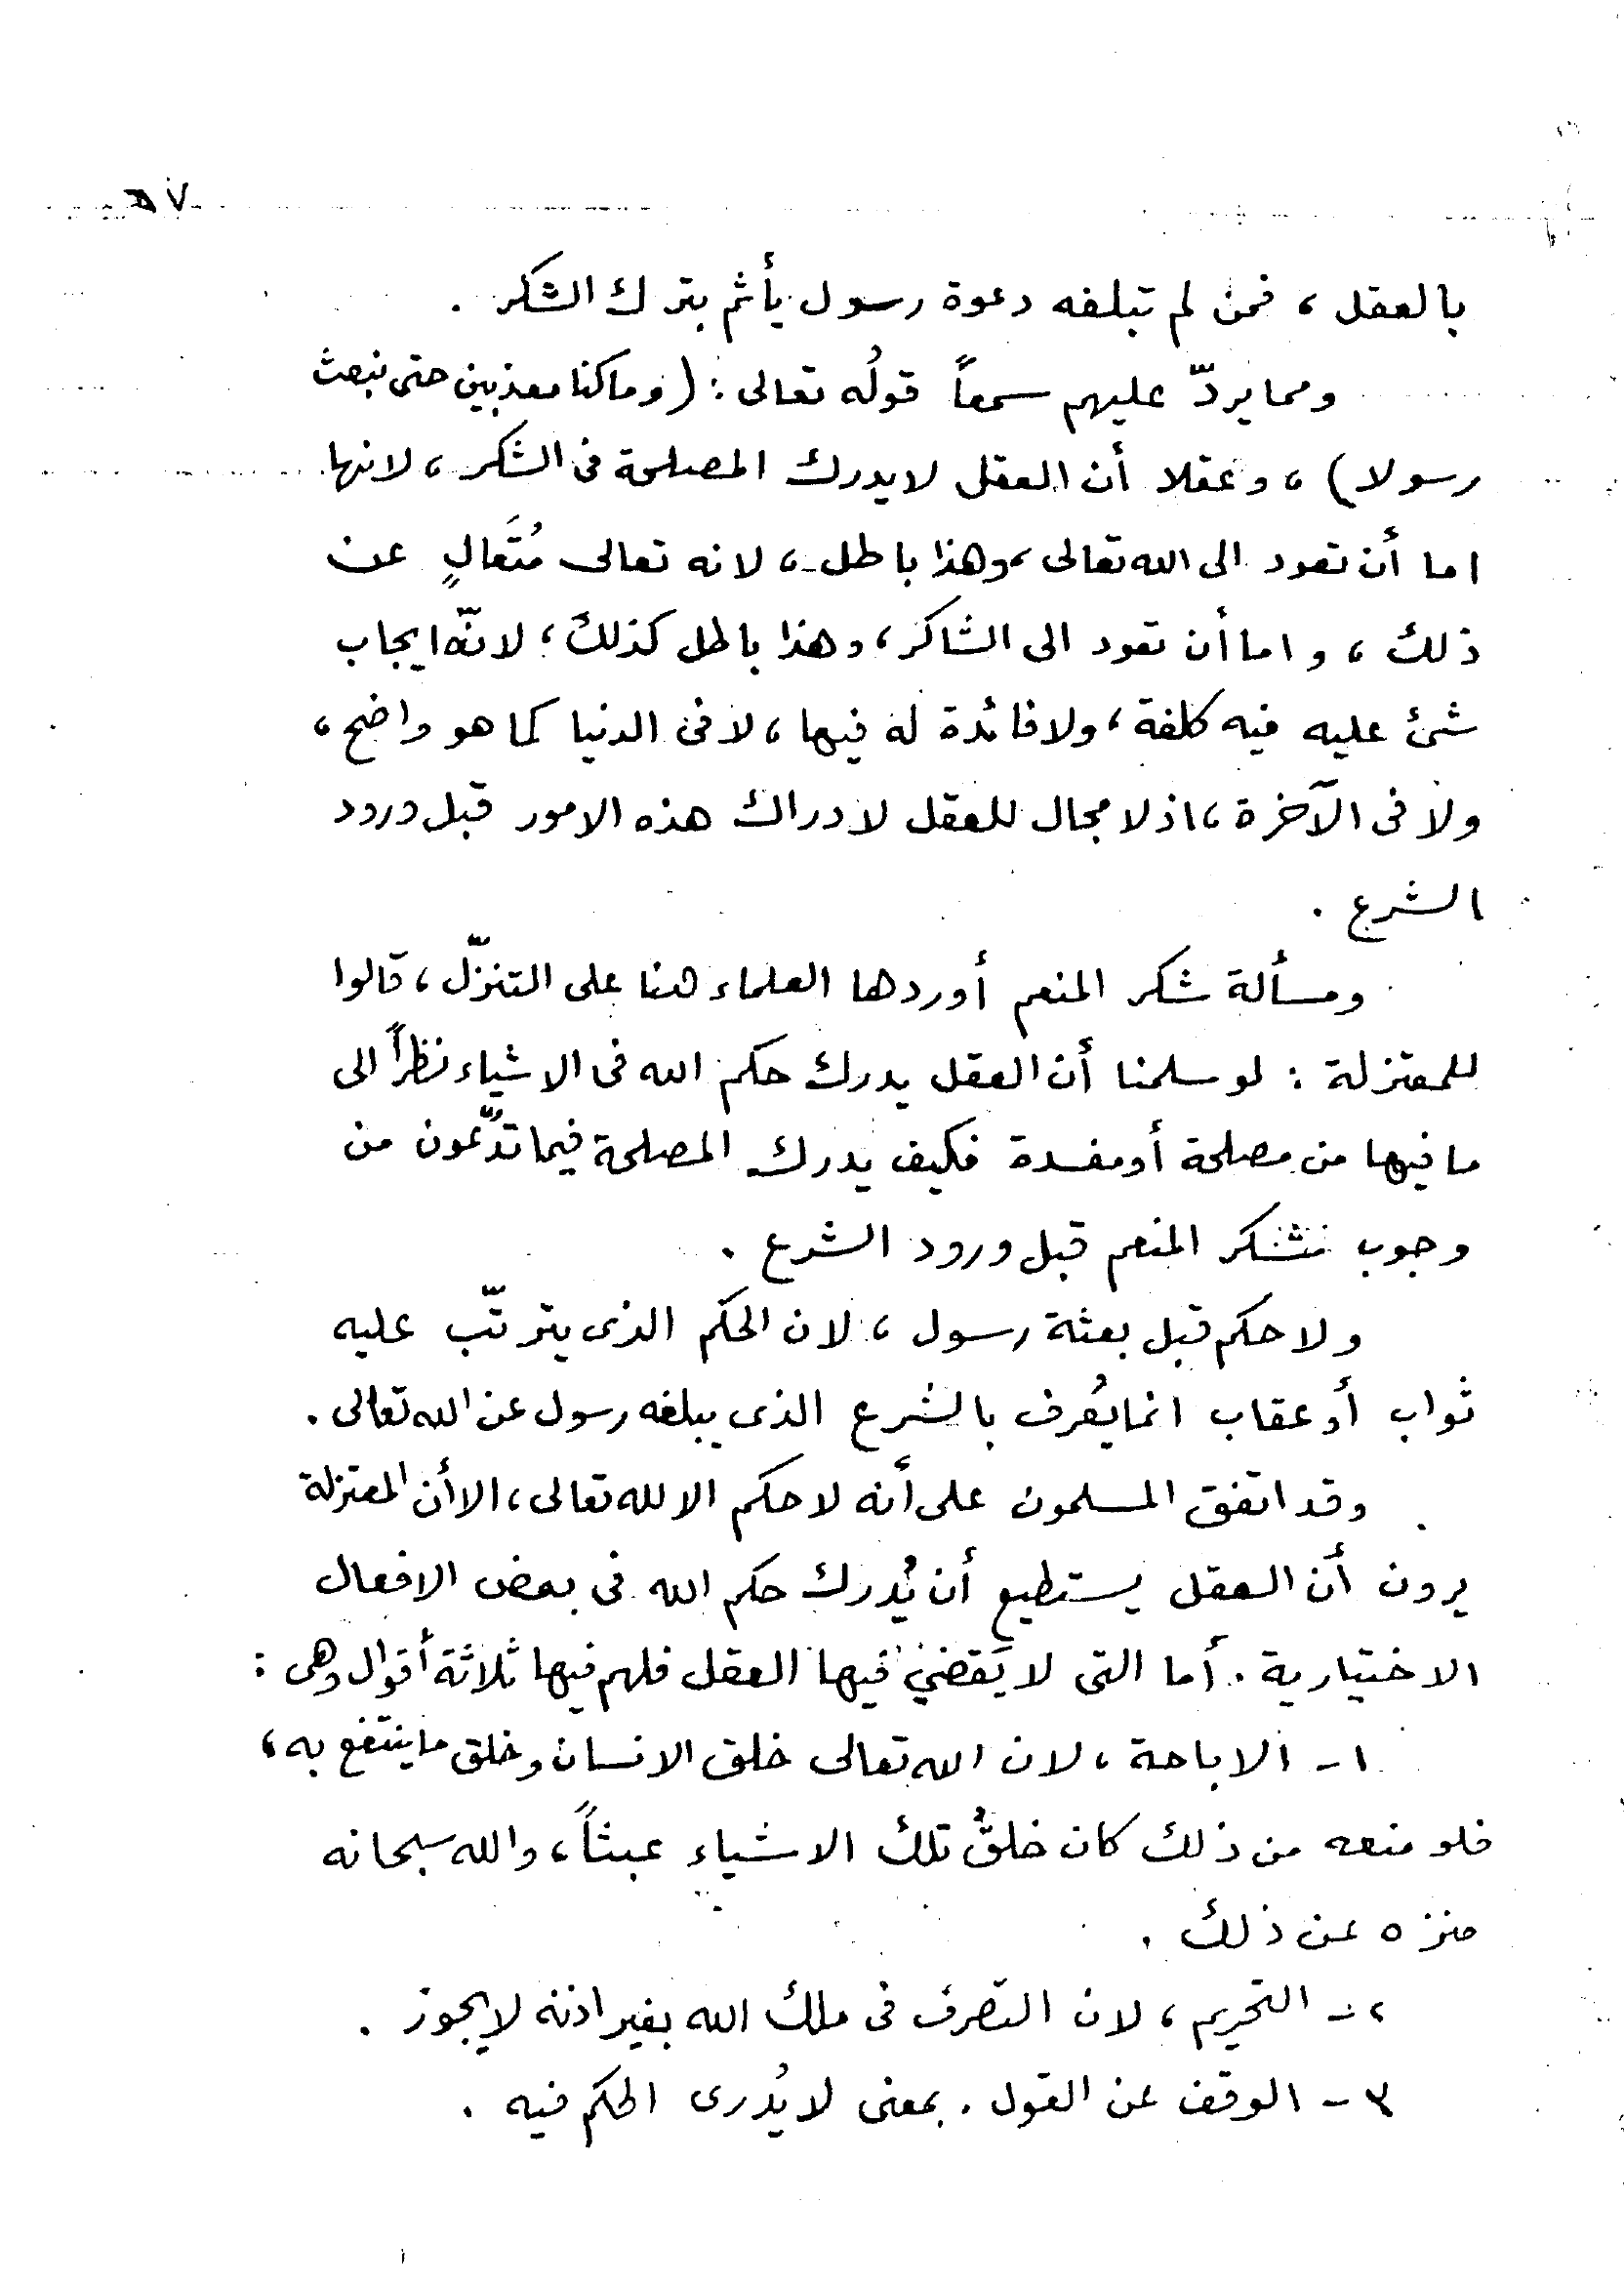 بالعقل ، فمن لم تبلغه دعوة رسول يأثم بترك الشكر .
ومما يردّ عليهم سمعاً قولُه تعالى : (وما كنا معذبين حتى نبعث
رسولا) ، وعقلا أن العقل لا يدرك المصلحة فى الشكر ، لانها
اما أن تعود الى الله تعالى ، وهذا باطل ، لانه تعالى مُتَعالٍ عن
ذلك ، واما أن تعود الى الشاكر ، وهذا باطل كذلك ، لانّه ايجاب
شئ عليه فيه كلفة ، ولا فائدة له فيها ، لا فى الدنيا كما هو واضح ،
ولا فى الآخرة ، اذ لا مجال للعقل لادراك هذه الامور قبل ورود
الشرع .
ومسألة شكر المنعم أوردها العلماء هنا على التنزّل ، قالوا
للمعتزلة : لو سلمنا أن العقل يدرك حكم الله فى الاشياء نظراً الى
ما فيها من مصلحة أو مفسدة فكيف يدرك المصلحة فيما تدّعون من
وجوب شكر المنعم قبل ورود الشرع .
ولا حكم قبل بعثة رسول ، لان الحكم الذى يترتّب عليه
ثواب أو عقاب انما يُعرف بالشرع الذى يبلغه رسول عن الله تعالى .
وقد اتفق المسلمون على أنه لا حكم الا لله تعالى ، الا أن المعتزلة
يرون أن العقل يستطيع أن يُدرك حكم الله فى بعض الافعال
الاختيارية . أما التى لا يَقضي فيها العقل فلهم فيها ثلاثة أقوال وهى :
١ - الاباحة ، لان الله تعالى خلق الانسان وخلق ما ينتفع به ،
فلو منعه من ذلك كان خلقُ تلك الاشياء عبثاً ، والله سبحانه
منزه عن ذلك .
٢ - التحريم ، لان التصرف فى ملك الله بغير اذنه لا يجوز .
٣ - الوقف عن القول . بمعنى لا يُدرى الحكم فيه .